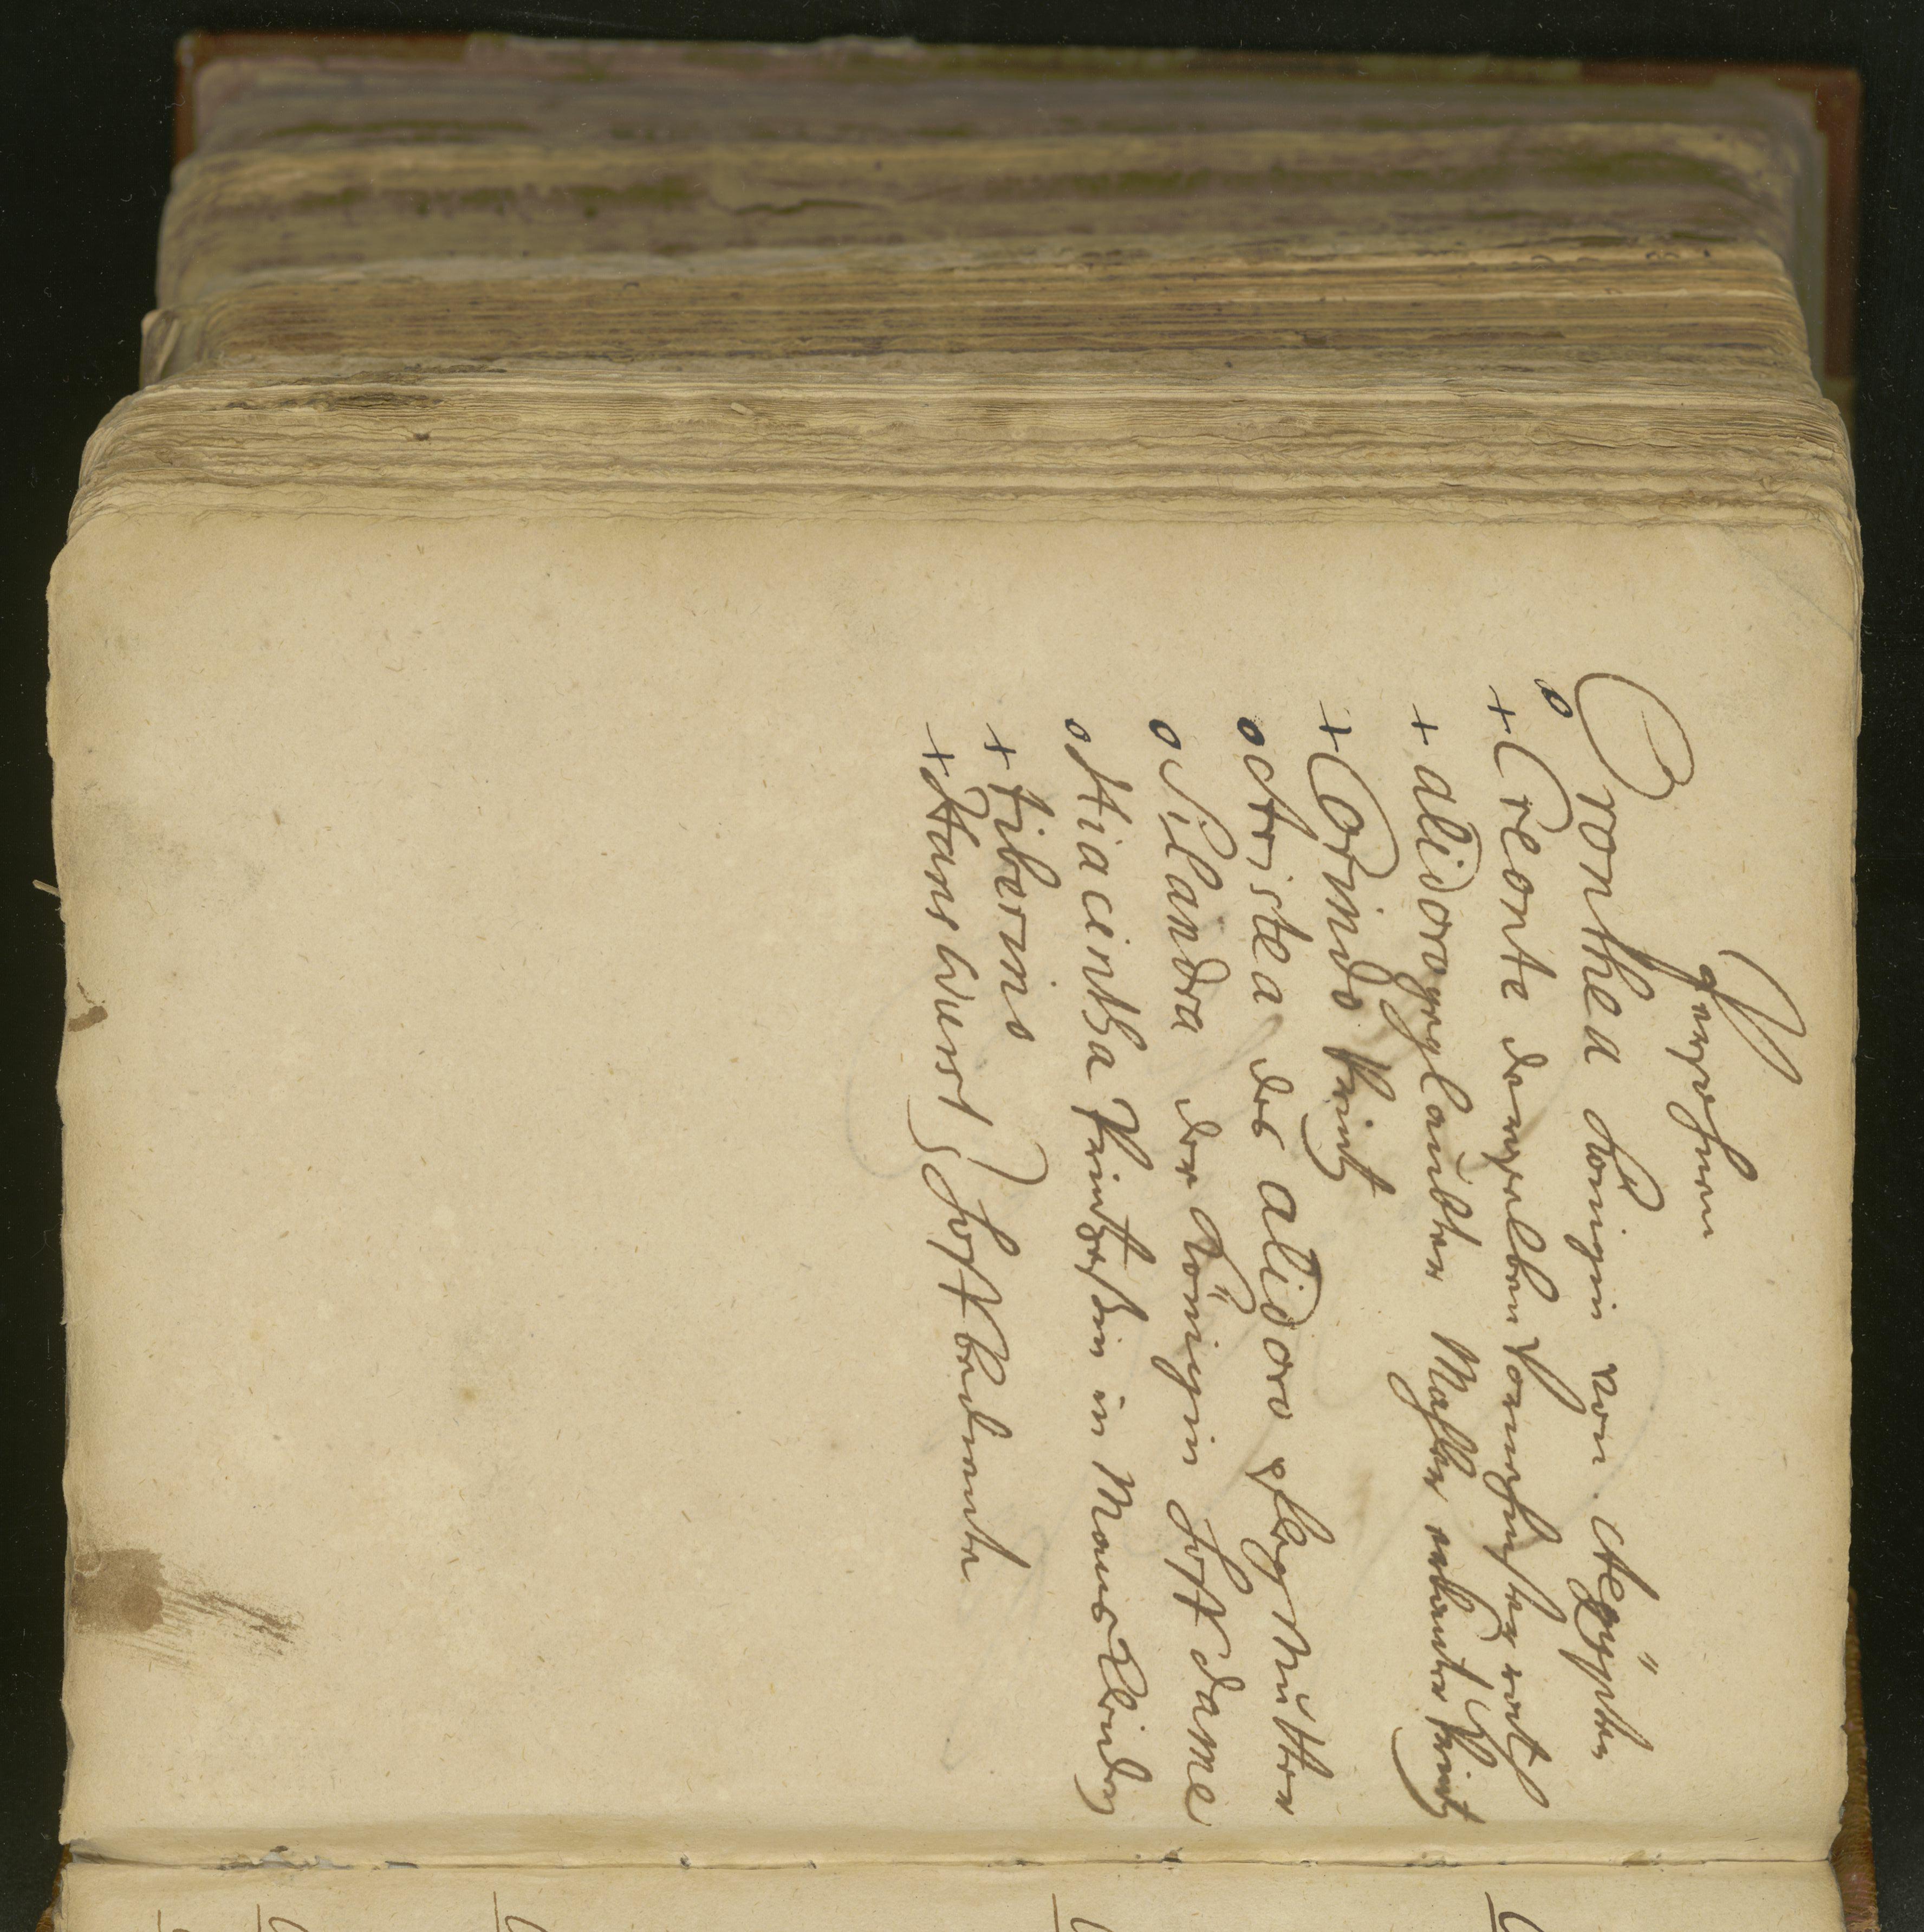 Persohnen
o Oronthea königin von Aegÿpten
+ Creonte derselben Vornehmster rath
+ alidoro geglaubter Mahler erkanter Printz
+ Corindo Printz
o Aristea des alidoro pfleg Mutter
o Silandra der Königin Hoff dame
o Hiacintha Printzessin in Mans Kleider
+ Tiberino
+ Hans Wurst } Hoff bediente